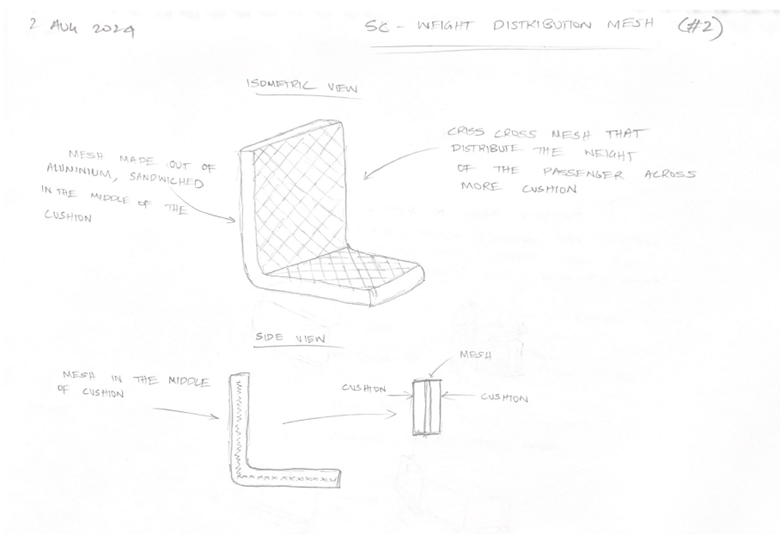 2 AUG 2024
SC - WEIGHT DISTRIBUTION MESH (#2)
ISOMETRIC VIEW
MESH MADE OUT OF
ALUMINIUM, SANDWICHED
IN THE MIDDLE OF THE
CUSHION
CRISS CROSS MESH THAT
DISTRIBUTE THE WEIGHT
OF THE PASSENGER ACROSS
MORE CUSHION
SIDE VIEW
MESH IN THE MIDDLE
OF CUSHION
MESH
CUSHION
CUSHION